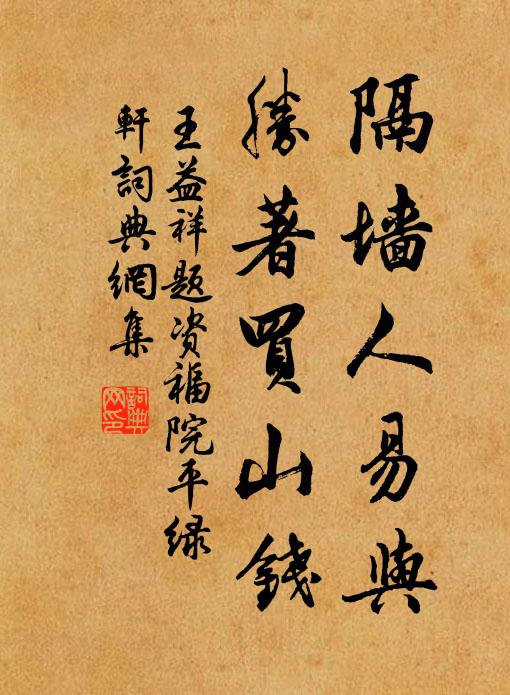 隔墙人易與
勝著買山錢
王益祥题资福院平绿
軒詞典網集
詞典网印